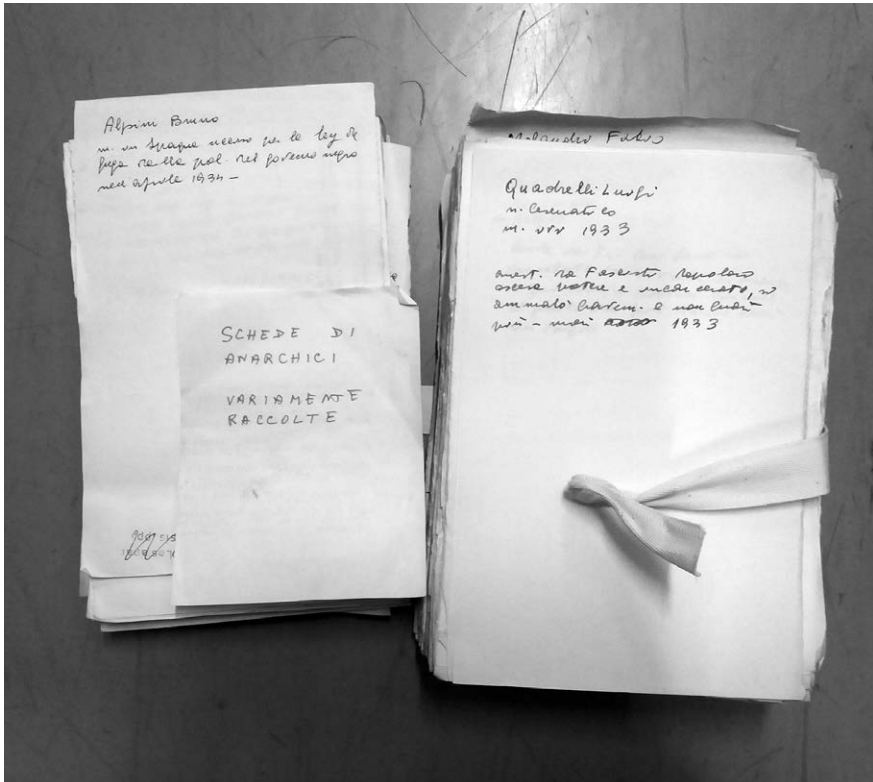 Alpini Bruno
m. in Spagna ucciso per la ley de
fuga dalla pol. del governo negro
nell aprile 1934 -
SCHEDE DI
ANARCHICI
VARIAMENTE
RACCOLTE
Melandri Fabio
Quadrelli Luigi
n. Cesenatico
m. 1933
arrest. da Fascisti
potere e incarcerato, si
ammalò gravem. e non guarì
più - morì 1933